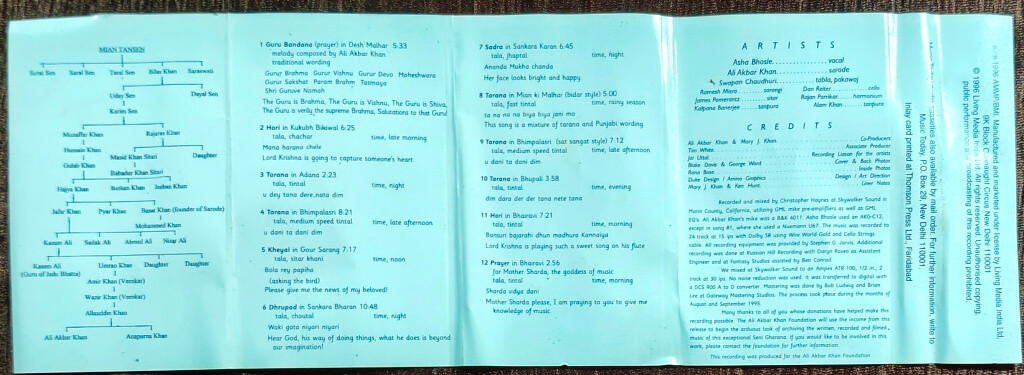 MIAN TANSEN
Surat Sen Sarat Sen Taraf Sen Bilas Khan Saraswati
Uday Sen Dayal Sen
Karim Sen
Muzaffer Khan Rajaras Khan
Hussain Khan Masid Khan Sitari Daughter
Gulab Khan Bahadur Khan Sitari
Hajiya Khan Jeeban Khan
Jafar Khan Pyar Khan Basat Khan (founder of Sarode)
Mohammed Khan
Kazam Ali Sadak Ali Ahmad Ali Nisar Ali
Kasem Ali Umrao Khan Daughter Daughter
(Guru of Jadu Bhatta)
Amir Khan (Veenkar)
Wazir Khan (Veenkar)
Allauddin Khan
Ali Akbar Khan Anapurna Khan
1 Guru Bandana (prayer) in Desh Malhar 5:33
melody composed by Ali Akbar Khan
traditional wording
Guru Brahma Guru Vishnu Guru Devo Maheshwara
Guru Sakshat Param Brahm Tasmaye
Shri Guruve Namah
The Guru is Brahma, The Guru is Vishnu, The Guru is Shiva,
The Guru is verily the supreme Brahma, Salutations to that Guru!
2 Hari in Kukubh Bilawal 6:25
tala, chachar time, late morning
Mana harana chele
Lord Krishna is going to capture someone's heart
3 Tarana in Adana 2:23
tala, tintal time, night
u dey tana dere,nata dim
4 Tarana in Bhimpalasri 8:21
tala, medium speed tintal time, late afternoon
u dani ta dani dim
5 Kheyal in Gour Sarang 7:17
tala, sitar khani time, noon
Bola rey papiha
(asking the bird)
Please give me the news of my beloved!
6 Dhrupad in Sankara Bharan 10:48
tala, choutal time, night
Waki gata niyari niyari
Hear God, his way of doing things, what he does is beyond
our imagination!
7 Sadra in Sankara Karan 6:45
tala, jhaptal time, night
Ananda Mukha chanda
Her face looks bright and happy
8 Tarana in Mian ki Malhar (bidar style) 5:00
tala, fast tintal time, rainy season
ta na na na biya biya jani ma
This song is a mixture of tarana and Punjabi wording
9 Tarana in Bhimpalasri (sat sangat style) 7:12
tala, medium speed tintal time, late afternoon
u dani ta dani dim
10 Tarana in Bhupali 3:58
tala, tintal time, evening
dim dara der der tana nete tana
11 Hari in Bhairavi 7:21
tala, tintal time, morning
Bansuri bajarahi dhun madhura Kannaiya
Lord Krishna is playing such a sweet song on his flute
12 Prayer in Bhairavi 2:56
for Mother Sharda, the goddess of music
tala, tintal time, morning
Sharda vidya dani
Mother Sharda please, I am praying to you to give me
knowledge of music
ARTISTS
Asha Bhosle vocal
Ali Akbar Khan sarode
Swapan Chaudhuri tabla, pakawaj
Ramesh Misra sarangi Dan Reiter cello
James Pomerantz sitar Rajan Parrikar harmonium
Kalpana Banerjee tanpura Alam Khan tanpura
CREDITS
Ali Akbar Khan & Mary J. Khan Co-Producers
Tim White Associate Producer
Jai Uttal Recording Liaison for the artists
Blake Davis & George Ward Cover & Back Photos
Rana Bose Inside Photos
Duke Design / Amina Graphics Design / Art Direction
Mary J. Khan & Ken Hunt Liner Notes
Recorded and mixed by Christopher Haynes at Skywalker Sound in
Marin County, California, utilizing GML mike pre-amplifiers as well as GML
EQ's. Ali Akbar Khan's mike was a B&K 4011. Asha Bhosle used an AKG-C12,
except in song #1, where she used a Nuemann U67. The music was recorded to
24 track at 15 ips with Dolby SR using Wire World Gold and Cello Strings
cable. All recording equipment was provided by Stephen G. Jarvis. Additional
recording was done at Russian Hill Recording with Daryn Roven as Assistant
Engineer and at Fantasy Studios assisted by Ben Conrad.
We mixed at Skywalker Sound to an Ampex ATR 100, 1/2 in., 2
track at 30 ips. No noise reduction was used. It was transferred to digital with
a DCS 900 A to D converter. Mastering was done by Bob Ludwig and Brian
Lee at Gateway Mastering Studios. The process took place during the months of
August and September 1995.
Many thanks to all of you whose donations have helped make this
recording possible. The Ali Akbar Khan Foundation will use the income from this
release to begin the arduous task of archiving the written, recorded and filmed
music of this exceptional Seni Gharana. If you would like to be involved in this
work, please contact the foundation for further information.
This recording was produced for the Ali Akbar Khan Foundation
1996 AMMP/BMI. Manufactured and marketed under license by Living Media India Ltd.
9K Block Connaught Circus New Delhi 110001
© 1996 Living Media India Ltd. All rights reserved. Unauthorised copying,
public performance broadcasting of this recording prohibited.
cassettes also available by mail order. For further information, write to
Music Today, P.O. Box 29, New Delhi 110001.
Inlay card printed at Thomson Press Ltd., Faridabad